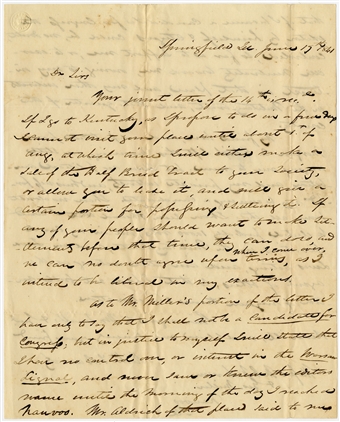 Springfield Ia June 17th 1841
Dr Sirs
Your joint letter of the 14th is recd.
If I go to Kentucky, as I propose to do in a few days
I cannot visit your place until about 1st of
Aug, at which time I will either make a
Sale of the Half Breed Tract to your Society,
or allow you to lease it, and will give a
certain portion for improving & settling it. If
any of your people should want to make set-
tlements before that time, they can do so and
we can no doubt agree upon terms, when I come over, as I
intend to be liberal in my exactions.
As to Mr Miller's portion of the letter I
have only to say that I shall not be a Candidate for
Congress, but in justice to myself I will state that
I have no control over, or interest in the Warsaw
Signal, and never saw or knew the editors
name until the morning of the day I reached
Nauvoo. Mr Aldrich of that place said to me